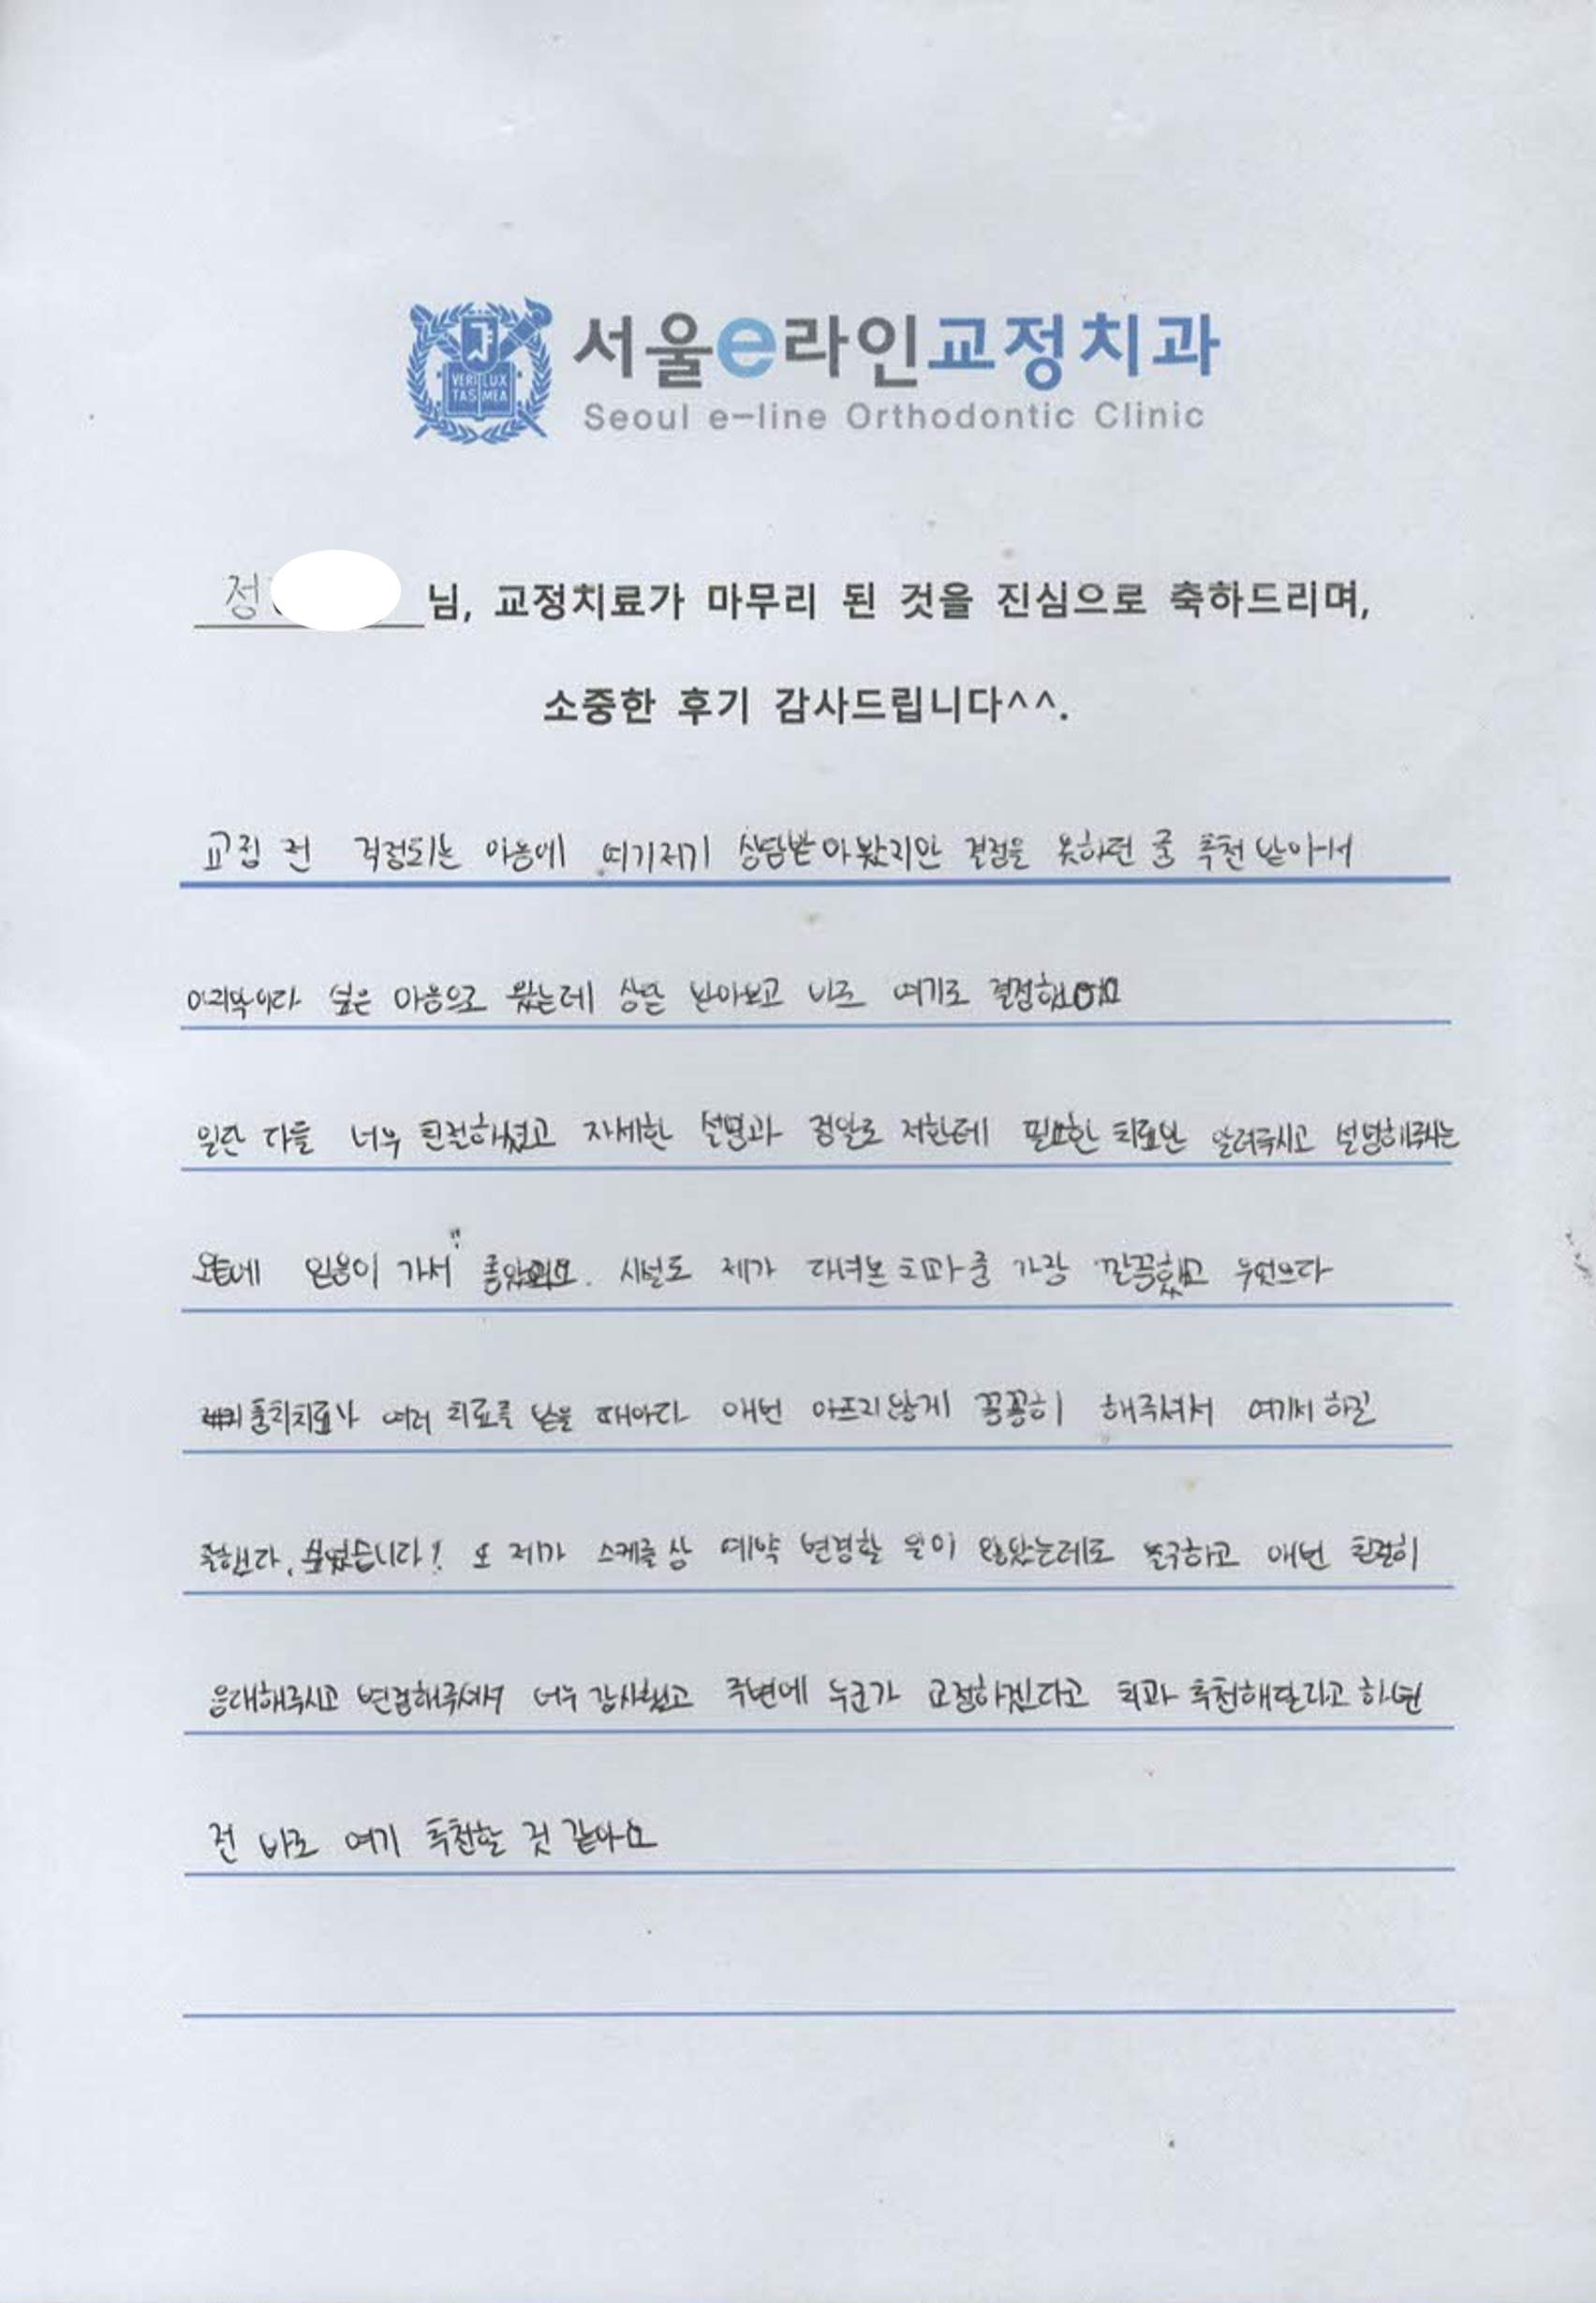 서울e라인교정치과
Seoul e-line Orthodontic Clinic
VERI LUX
TAS MEA
정 님, 교정치료가 마무리 된 것을 진심으로 축하드리며,
소중한 후기 감사드립니다^^.
교정 전 걱정되는 마음에 여기저기 상담받아봤지만 결정을 못하던 중 추천 받아서
마지막이다 싶은 마음으로 왔는데 상담 받아보고 바로 여기로 결정했어요
일단 다들 너무 친절하셨고 자세한 설명과 정말로 저한테 필요한 치료만 알려주시고 설명해주시는
모습에 믿음이 가서 좋았어요. 시설도 제가 다녀본 치과 중 가장 깔끔했고 무엇보다
충치치료나 여러 치료를 받을 때마다 매번 아프지않게 꼼꼼히 해주셔서 여기서 하길
잘했다, 싶었습니다! 또 제가 스케줄 상 예약 변경할 일이 많았는데도 불구하고 매번 친절히
응대해주시고 변경해주셔서 너무 감사했고 주변에 누군가 교정하겠다고 치과 추천해달라고 하면
전 바로 여기 추천할 것 같아요